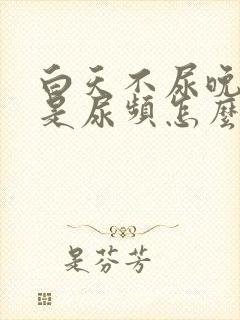 白天不尿晚
是尿頻怎麼
是芬芳